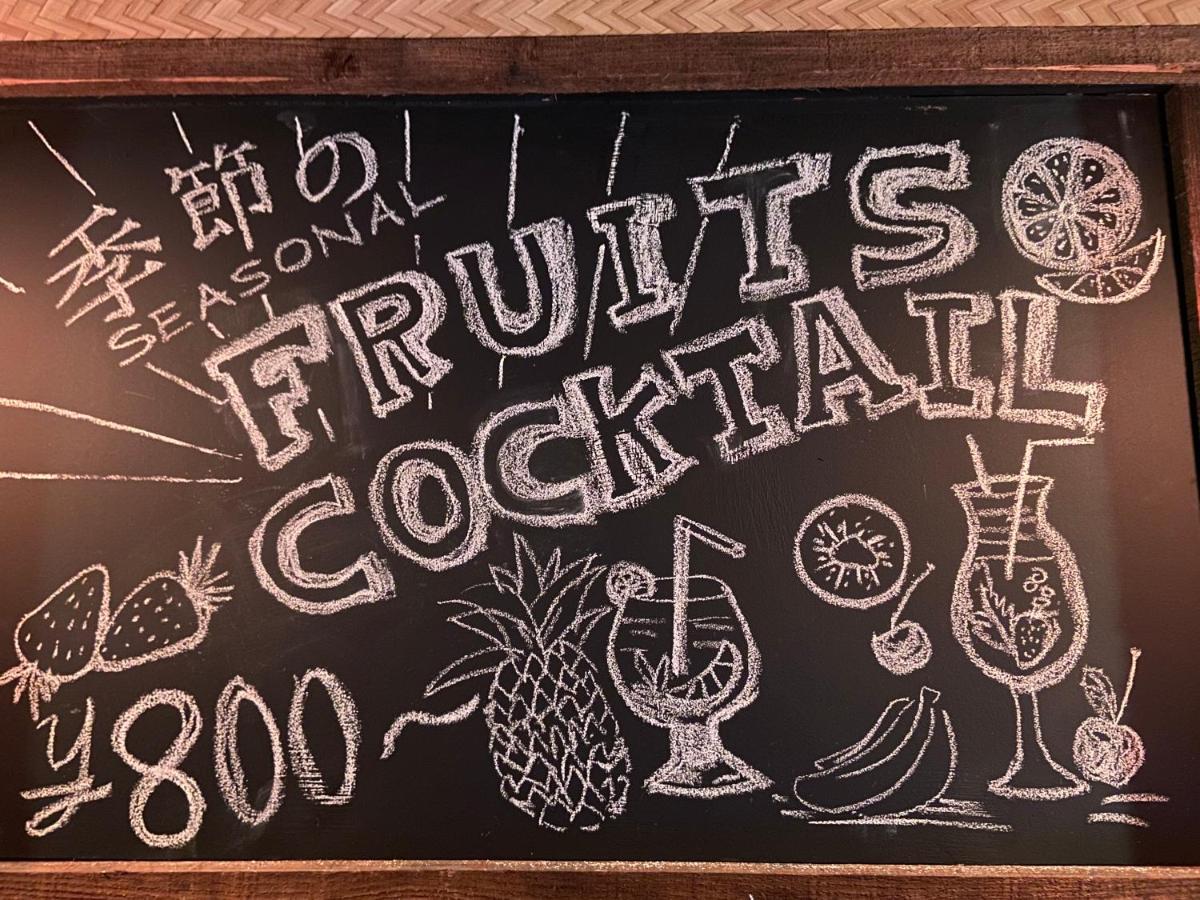 季節の
SEASONAL
FRUITS
COCKTAIL
¥800